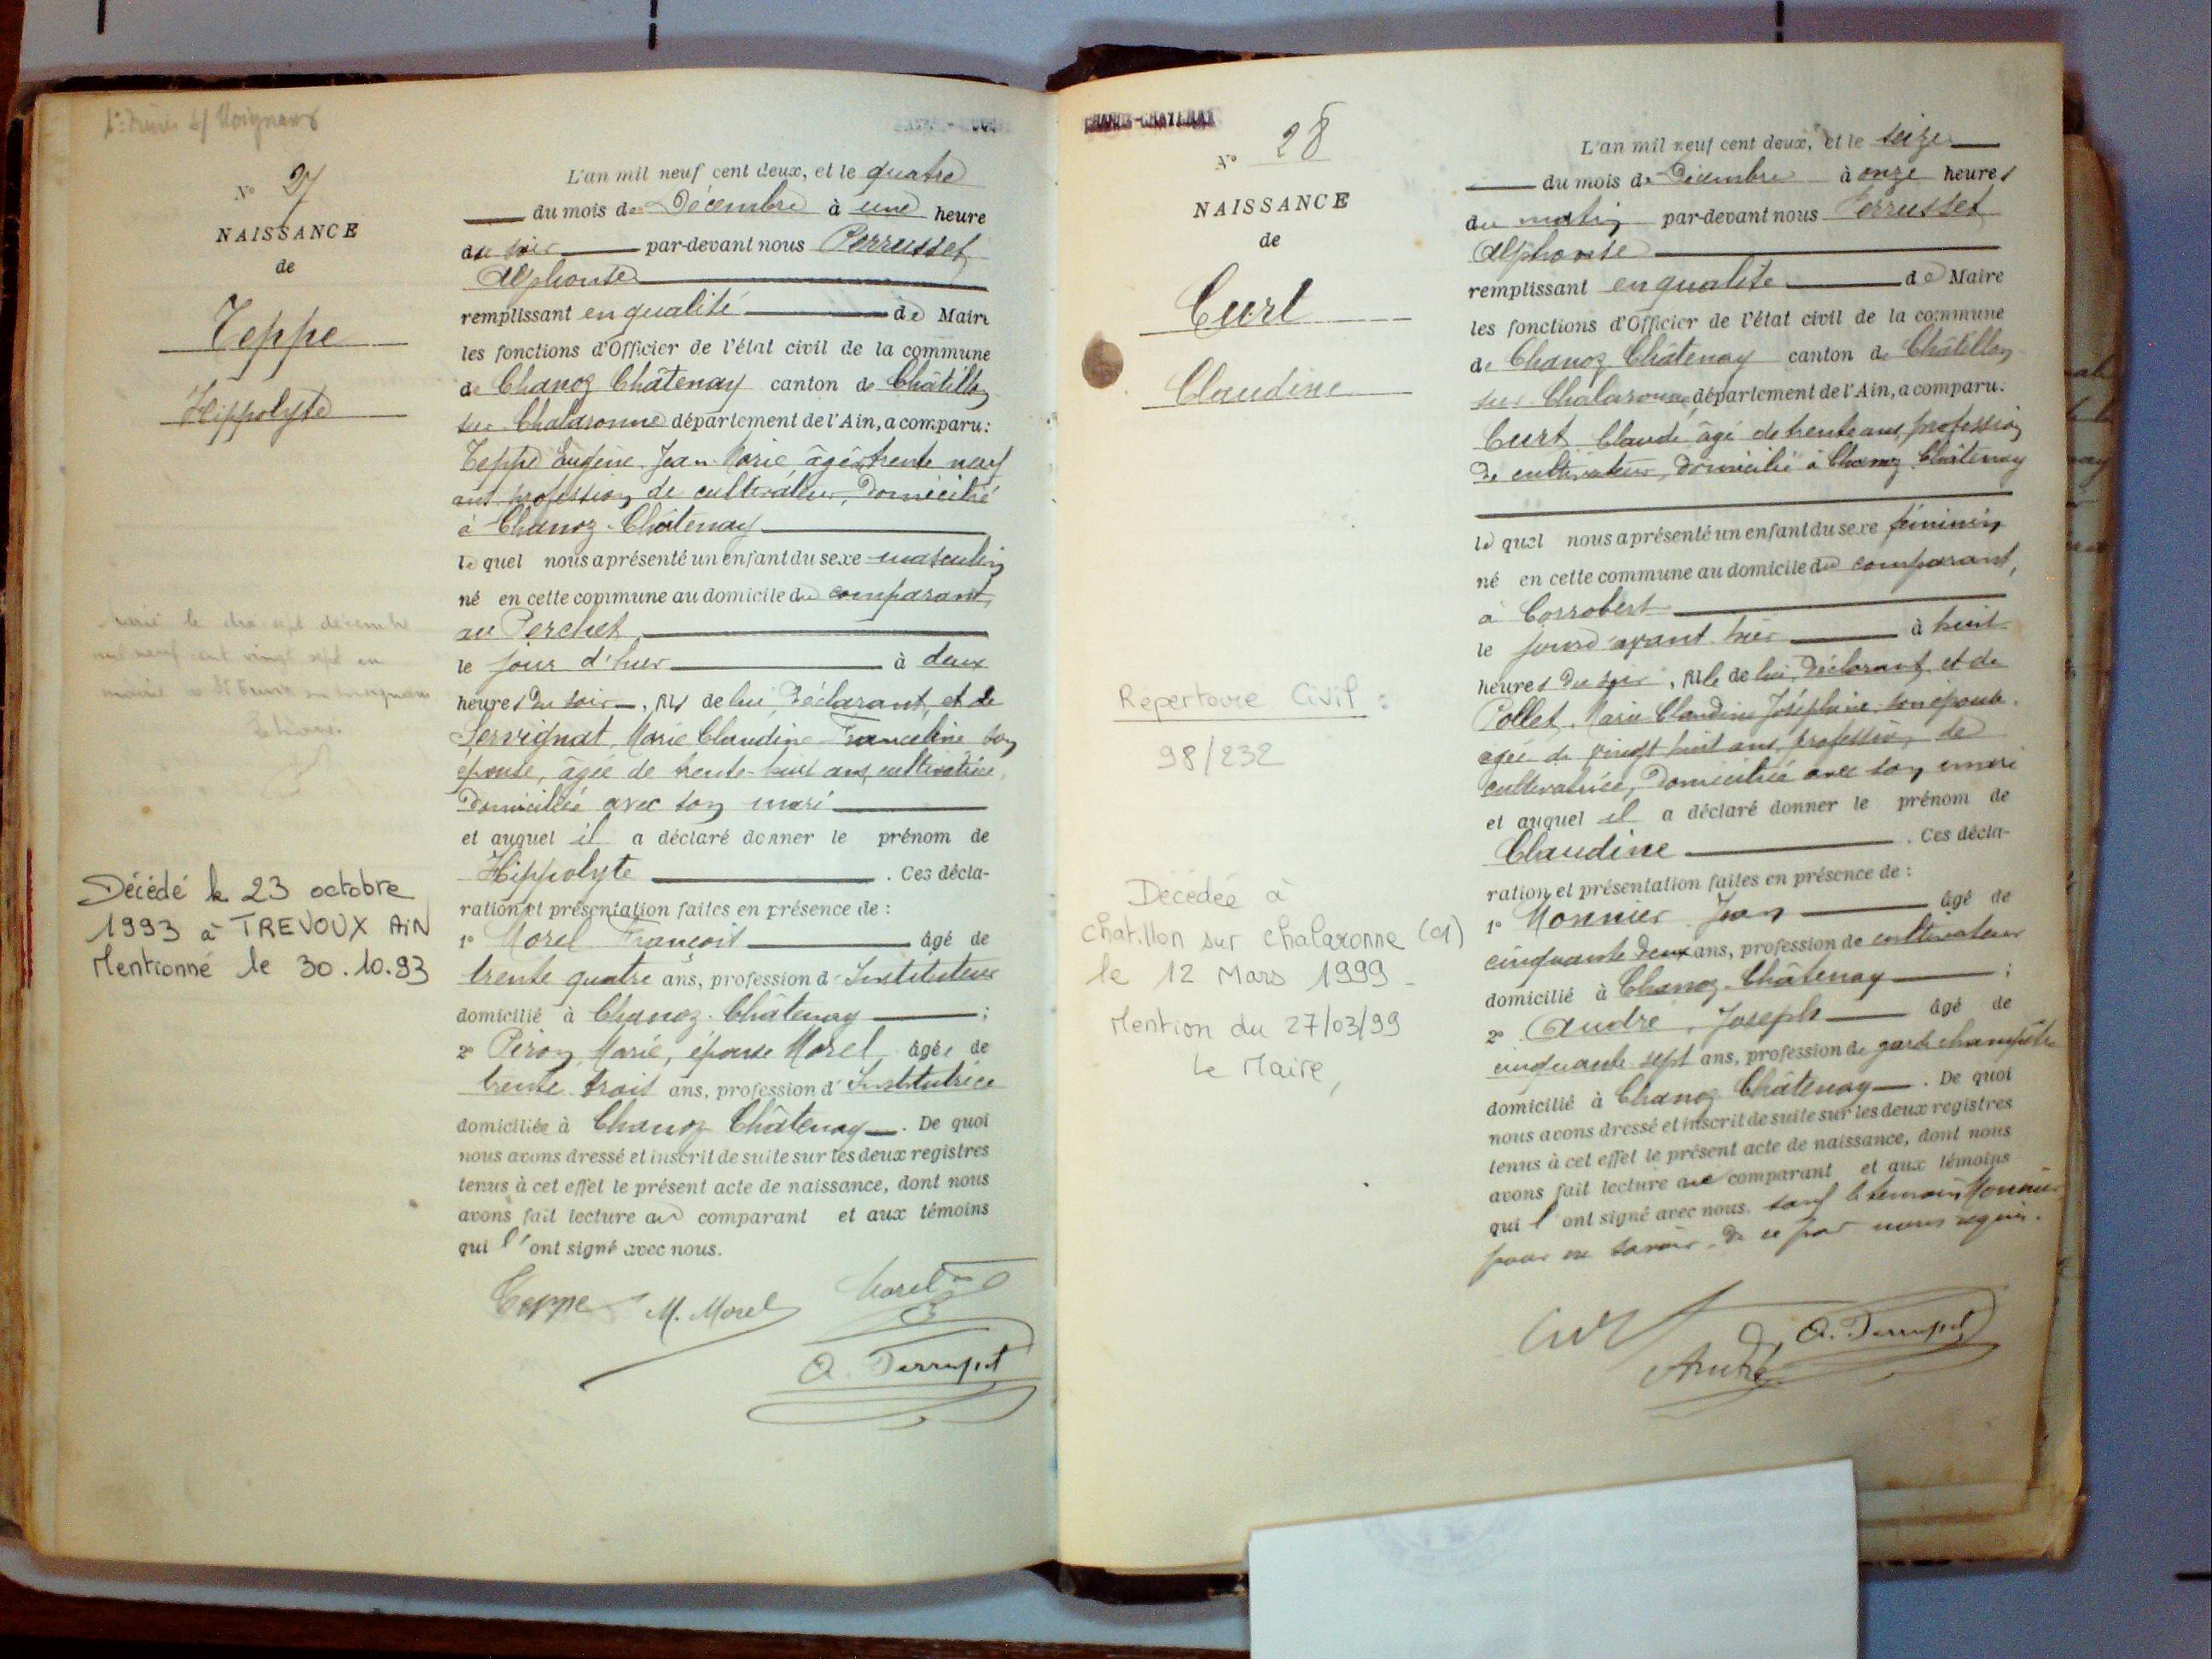 Nº 27
NAISSANCE
de
Teppe
Hippolyte
Marié le dix sept décembre
mil neuf cent vingt sept en
mairie
Décédé le 23 octobre
1993 à TREVOUX AIN
Mentionné le 30.10.93
L'an mil neuf cent deux, et le quatre
du mois de Décembre à une heure
du soir par-devant nous Perrusset
Alphonse
remplissant en qualité de Maire
les fonctions d'Officier de l'état civil de la commune
de Chanoz Châtenay canton de Châtillon
sur Chalaronne département de l'Ain, a comparu:
Teppe Eugène Jean Marie âgé trente neuf
ans profession de cultivateur, domicilié
à Chanoz-Châtenay
le quel nous a présenté un enfant du sexe masculin
né en cette commune au domicile du comparant,
au Perchet
le jour d'hier à deux
heures du soir, fils de lui, déclarant, et de
Servignat, Marie Claudine Franceline son
épouse, âgée de trente-huit ans, cultivatrice,
domiciliée avec son mari
et auquel il a déclaré donner le prénom de
Hippolyte . Ces décla-
ration et présentation faites en présence de :
1º Morel François âgé de
trente quatre ans, profession d'Instituteur
domicilié à Chanoz-Châtenay ;
2º Piron Marie, épouse Morel âgée de
trente trois ans, profession d'Institutrice
domiciliée à Chanoz Châtenay . De quoi
nous avons dressé et inscrit de suite sur les deux registres
tenus à cet effet le présent acte de naissance, dont nous
avons fait lecture au comparant et aux témoins
qui l'ont signé avec nous.
Teppe M. Morel Morel
A. Perrusset
CHANOZ-CHATENAY
Nº 28
NAISSANCE
de
Curt
Claudine
Répertoire Civil :
98/232
Décédée à
Chatillon sur Chalaronne (01)
le 12 Mars 1999
Mention du 27/03/99
Le Maire,
L'an mil neuf cent deux, et le seize
du mois de Décembre à onze heures
du matin par-devant nous Perrusset
Alphonse
remplissant en qualité de Maire
les fonctions d'Officier de l'état civil de la commune
de Chanoz Châtenay canton de Châtillon
sur Chalaronne département de l'Ain, a comparu:
Curt Claude âgé de trente ans, profession
de cultivateur, domicilié à Chanoz Châtenay
le quel nous a présenté un enfant du sexe féminin
né en cette commune au domicile du comparant,
à Corrobert
le jour d'avant hier à huit
heures du soir, fille de lui, déclarant et de
Pollet, Marie Claudine Joséphine, son épouse,
agée de vingt huit ans, profession de
cultivatrice, domiciliée avec son mari
et auquel il a déclaré donner le prénom de
Claudine . Ces décla-
ration et présentation faites en présence de :
1º Monnier Jean âgé de
cinquante deux ans, profession de cultivateur
domicilié à Chanoz-Châtenay ;
2º André, Joseph âgé de
cinquante sept ans, profession de garde champêtre
domicilié à Chanoz Châtenay . De quoi
nous avons dressé et inscrit de suite sur les deux registres
tenus à cet effet le présent acte de naissance, dont nous
avons fait lecture au comparant et aux témoins
qui l'ont signé avec nous. sauf le témoin Monnier
pour ne savoir, de ce par nous requis.
Curt A. Perrusset
André